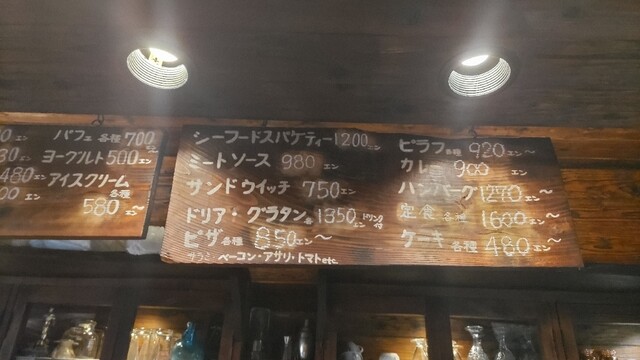 パフェ各種 700
ヨーグルト 500エン
アイスクリーム
各種
580エン〜
480エン
シーフードスパゲティー 1200エン
ミートソース 980エン
サンドウイッチ 750エン
ドリア・グラタン 1350エン ドリンク付
ピザ各種 850エン〜
ベーコン・アサリ・トマトetc
ピラフ各種 920エン〜
カレー 900エン
ハンバーグ 1270エン〜
定食各種 1600エン〜
ケーキ各種 480エン〜